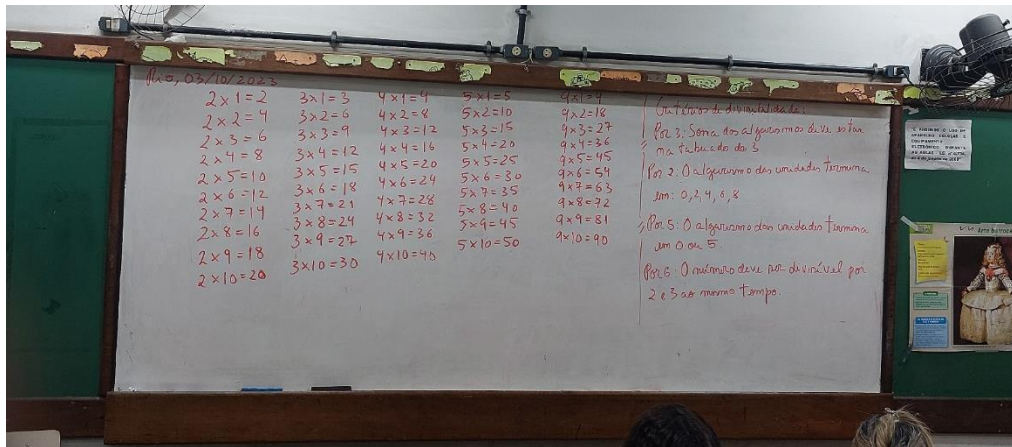 Rio, 03/10/2023
2 x 1 = 2
2 x 2 = 4
2 x 3 = 6
2 x 4 = 8
2 x 5 = 10
2 x 6 = 12
2 x 7 = 14
2 x 8 = 16
2 x 9 = 18
2 x 10 = 20
3 x 1 = 3
3 x 2 = 6
3 x 3 = 9
3 x 4 = 12
3 x 5 = 15
3 x 6 = 18
3 x 7 = 21
3 x 8 = 24
3 x 9 = 27
3 x 10 = 30
4 x 1 = 4
4 x 2 = 8
4 x 3 = 12
4 x 4 = 16
4 x 5 = 20
4 x 6 = 24
4 x 7 = 28
4 x 8 = 32
4 x 9 = 36
4 x 10 = 40
5 x 1 = 5
5 x 2 = 10
5 x 3 = 15
5 x 4 = 20
5 x 5 = 25
5 x 6 = 30
5 x 7 = 35
5 x 8 = 40
5 x 9 = 45
5 x 10 = 50
9 x 1 = 9
9 x 2 = 18
9 x 3 = 27
9 x 4 = 36
9 x 5 = 45
9 x 6 = 54
9 x 7 = 63
9 x 8 = 72
9 x 9 = 81
9 x 10 = 90
Critérios de divisibilidade:
Por 3: Soma dos algarismos deve estar
na tabuada do 3
Por 2: O algarismo das unidades termina
em: 0, 2, 4, 6, 8
Por 5: O algarismo das unidades termina
em 0 ou 5.
Por 6: O número deve ser divisível por
2 e 3 ao mesmo tempo.
Arte barroca